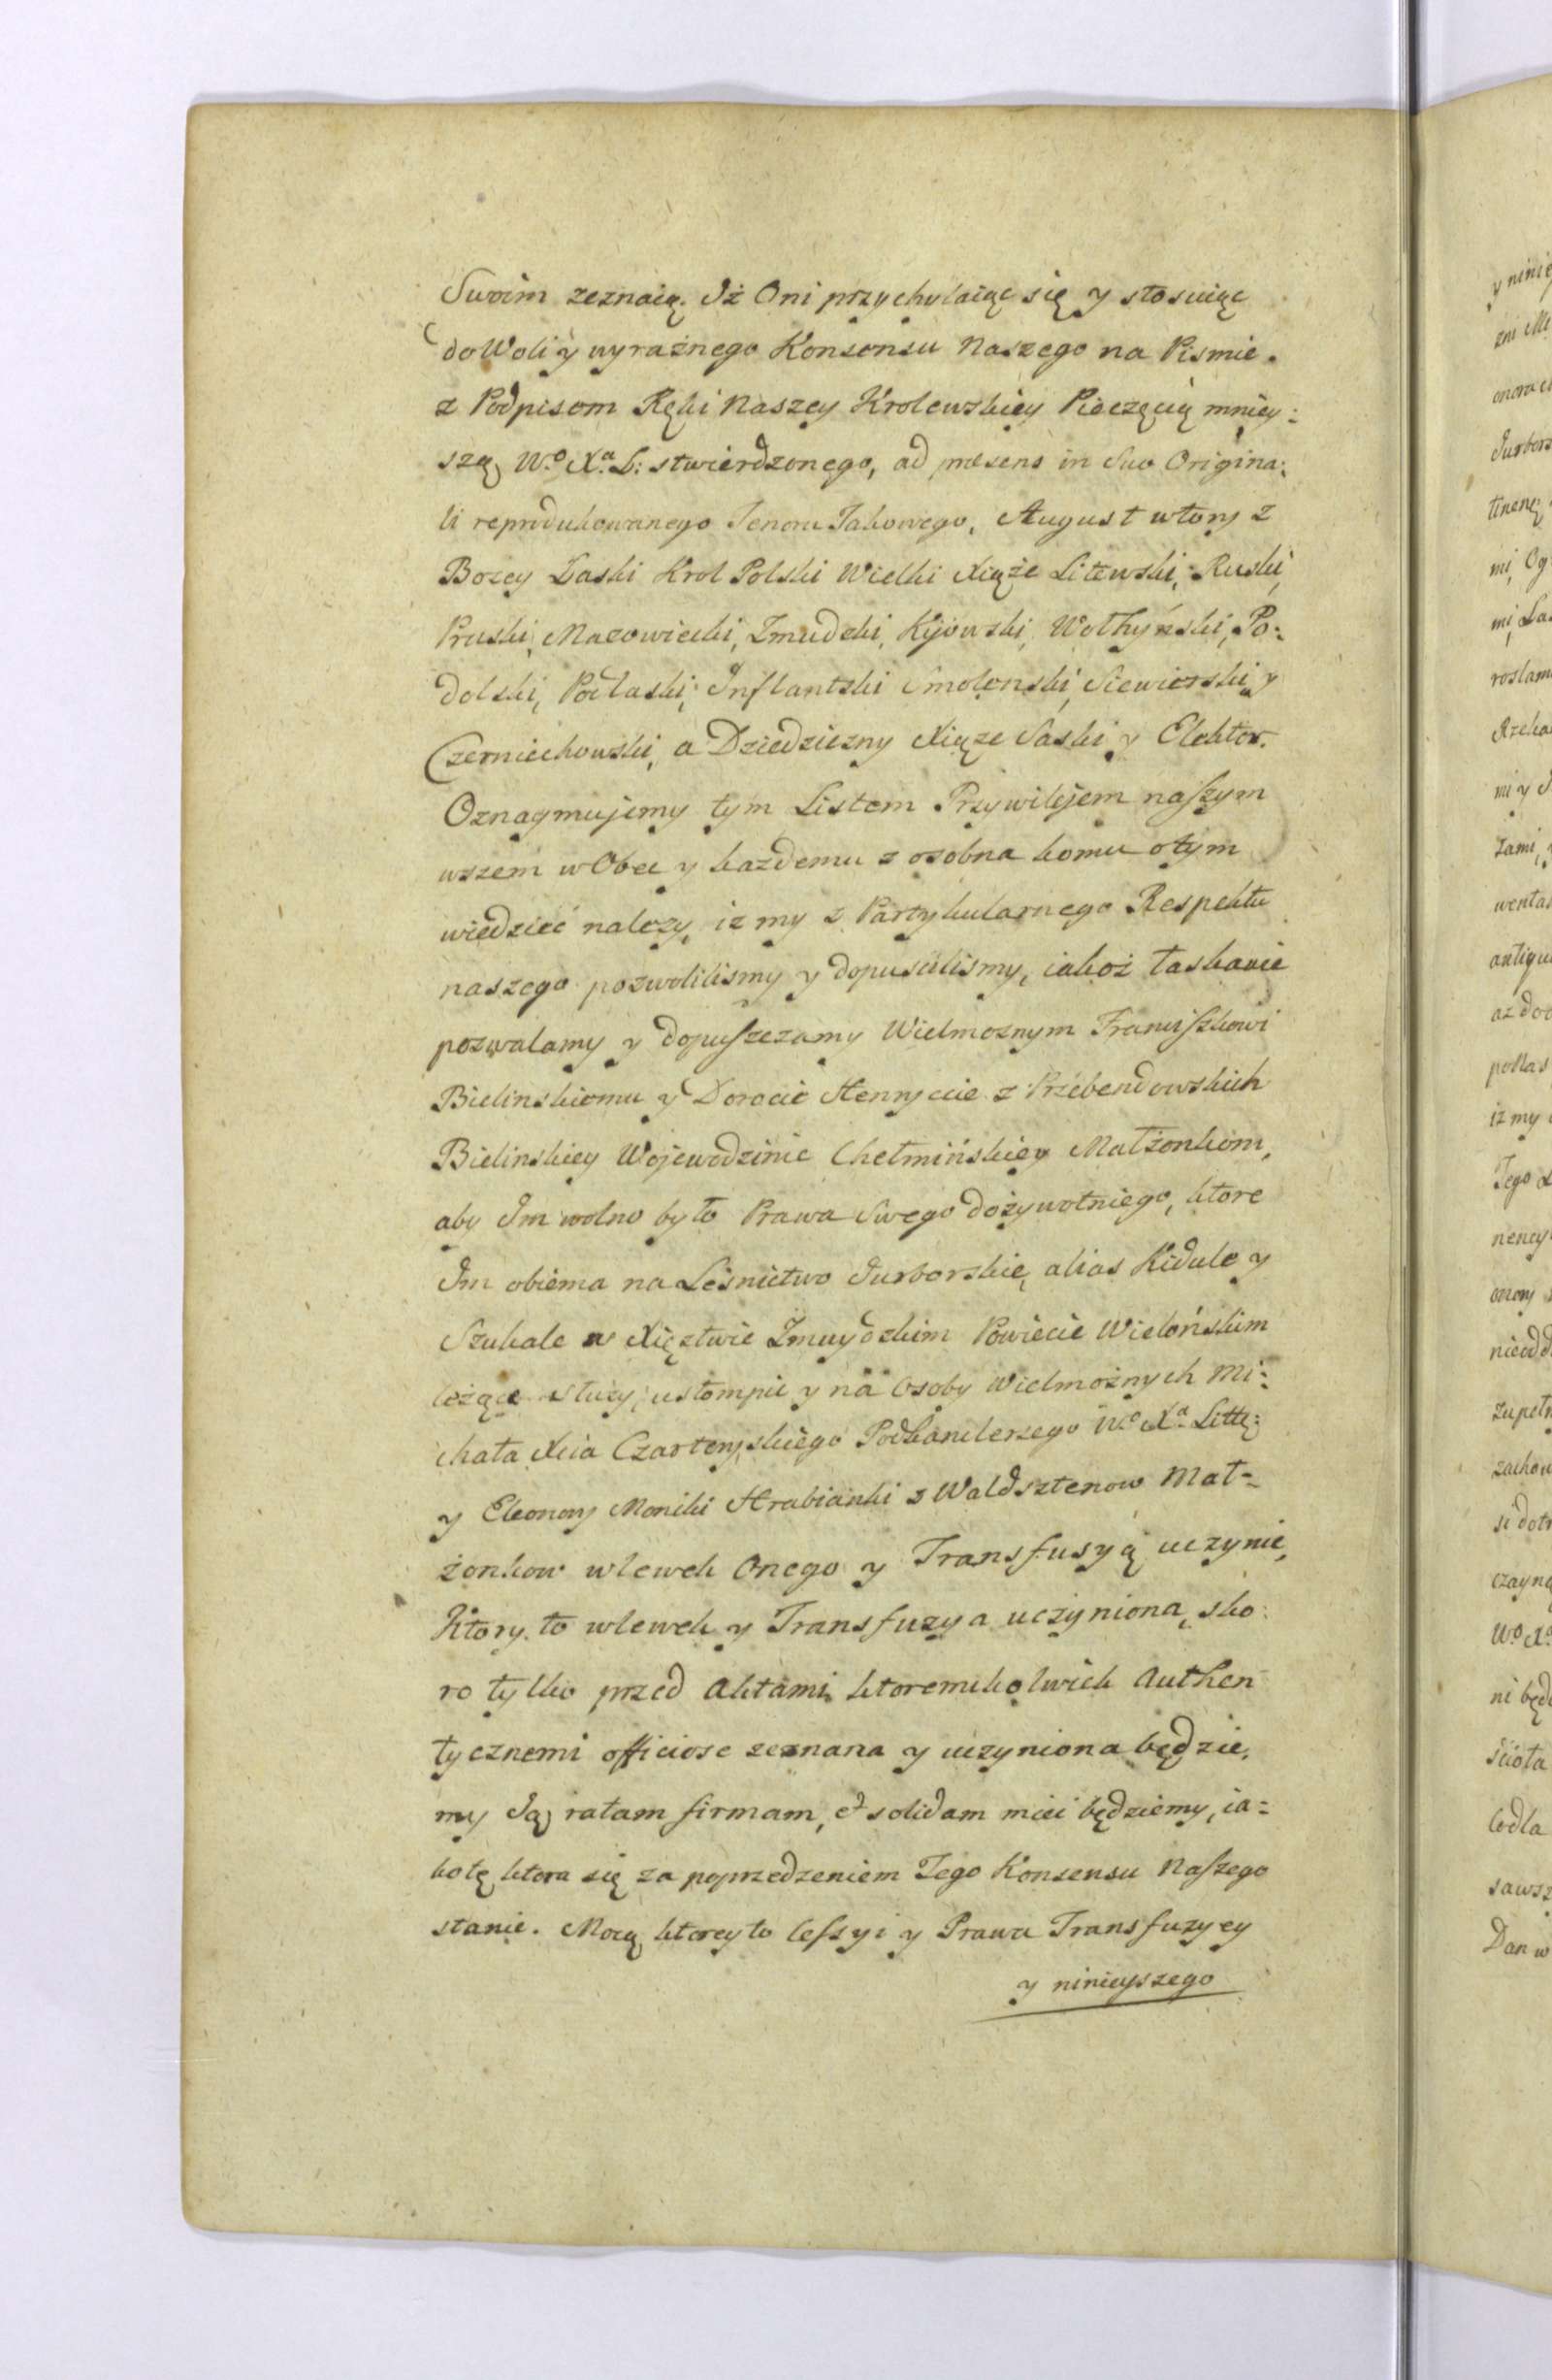 Swoim zeznaią. Iż Oni przychylaiąc się y stosuiąc
do Woli y wyraźnego Konsensu Naszego na Pismie.
z Podpisem Ręki Naszey Krolewskiey Pieczęcią mniey:
szą W.º X.ª L: stwierdzonego, ad præsens in Suo Origina:
li reprodukowanego Tenoru Takowego, August wtory z
Bozey Łaski Krol Polski Wielki Xiąże Litewski, Ruski,
Pruski, Mazowiecki, Zmudzki, Kijowski, Wołhyński, Po:
dolski, Podlaski, Inflantski Smolenski, Siewierski, y
Czerniechowski, a Dziedziczny Xiąze Saski y Elektor.
Oznaymujemy tym Listem Przywilejem naszym
wszem w Obec y kazdemu z osobna komu o tym
wiedzieć nalezy, iz my z Partykularnego Respektu
naszego pozwolilismy y dopuscilismy, iakoż łaskawie
pozwalamy y dopuszczamy Wielmoznym Franciszkowi
Bielinskiemu y Dorocie Henryecie z Przebendowskich
Bielinskiey Wojewodzinie Chełmińskiey Małżonkom,
aby Im wolno było Prawa Swego dożywotniego, ktore
Im obiema na Leśnictwo Jurborskie, alias Kidule y
Szukale w Xięztwie Zmuydzkim Powiecie Wielońskim
leżące służy, ustompić y na Osoby Wielmożnych Mi:
chała Xcia Czartoryskiego Podkanclerzego W.º X.ª Litt:
y Eleonory Moniki Hrabianki z Waldsztenow Mał-
żonkow wlewek Onego y Transfusyą uczynić,
Ktory to wlewek y Transfuzya uczyniona, sko:
ro tylko przed Aktami ktoremikolwiek Authen
tycznemi officiose zeznana y uczyniona będzie,
my Ją ratam firmam, et solidam mieć będziemy, ia-
ko tę ktora się za poprzedzeniem Tego Konsensu Naszego
stanie. Mocą ktorey to Cessyi y Prawa Transfuzyey
y ninieyszego